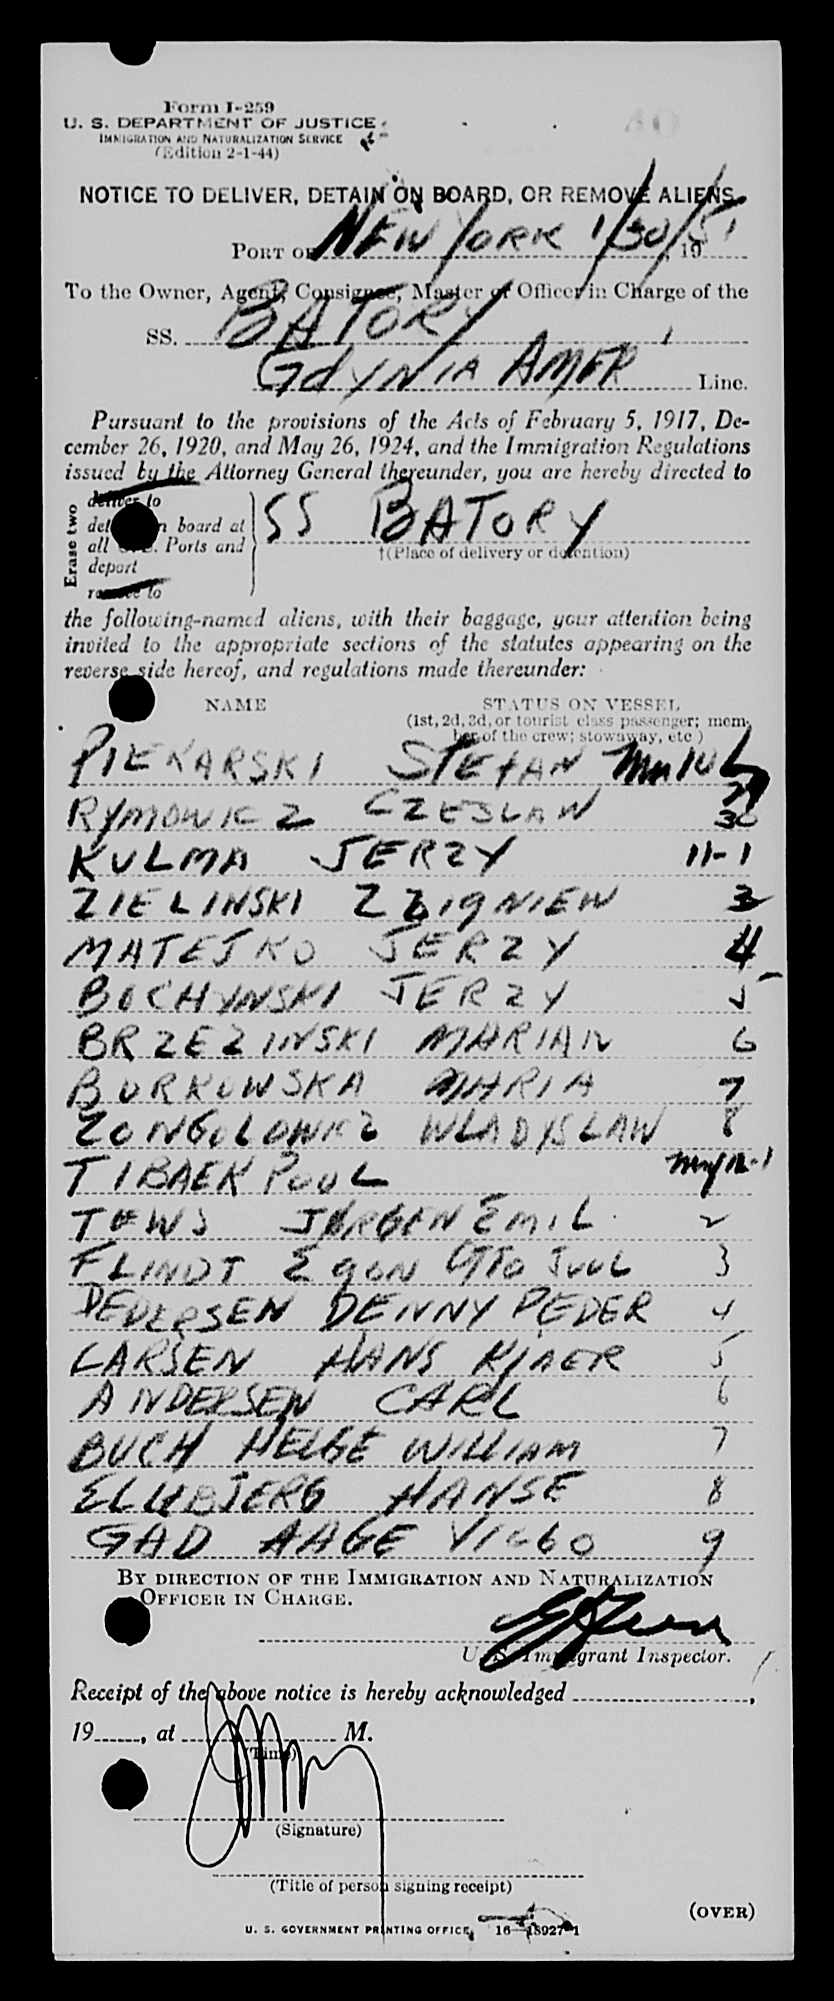 Form I-259
U. S. DEPARTMENT OF JUSTICE
IMMIGRATION AND NATURALIZATION SERVICE
(Edition 2-1-44)
NOTICE TO DELIVER, DETAIN ON BOARD, OR REMOVE ALIENS
PORT OF NEW YORK 1/30/51, 19
To the Owner, Agent, Consignee, Master or Officer in Charge of the
SS. BATORY
GDYNIA AMER Line.
Pursuant to the provisions of the Acts of February 5, 1917, De-
cember 26, 1920, and May 26, 1924, and the Immigration Regulations
issued by the Attorney General thereunder, you are hereby directed to
Erase two
deliver to
detain on board at SS BATORY
all U.S. Ports and †(Place of delivery or detention)
depart
remove to
the following-named aliens, with their baggage, your attention being
invited to the appropriate sections of the statutes appearing on the
reverse side hereof, and regulations made thereunder:
NAME STATUS ON VESSEL
(1st, 2d, 3d, or tourist class passenger; mem-
ber of the crew; stowaway, etc.)
PIEKARSKI STEFAN
RYMOWICZ CZESLAW 30
KULMA JERZY 11-1
ZIELINSKI ZBIGNIEW 3
MATEJKO JERZY 4
BOCHYNSKI JERZY 5
BRZEZINSKI MARIAN 6
BORKOWSKA MARIA 7
ZONGOLOWICZ WLADYSLAW 8
TIBAEK POUL 12-1
TEWS JØRGEN EMIL 2
FLINDT EGON OTTO JUUL 3
PEDERSEN DENNY PEDER 4
LARSEN HANS KJAER 5
ANDERSEN CARL 6
BUCH HELGE WILLIAM 7
ELLEBJERG HANSE 8
GAD AAGE VIGGO 9
BY DIRECTION OF THE IMMIGRATION AND NATURALIZATION
OFFICER IN CHARGE.
U. S. Immigrant Inspector.
Receipt of the above notice is hereby acknowledged ,
19 , at M.
(Time)
(Signature)
(Title of person signing receipt)
(OVER)
U. S. GOVERNMENT PRINTING OFFICE 16—18927-1